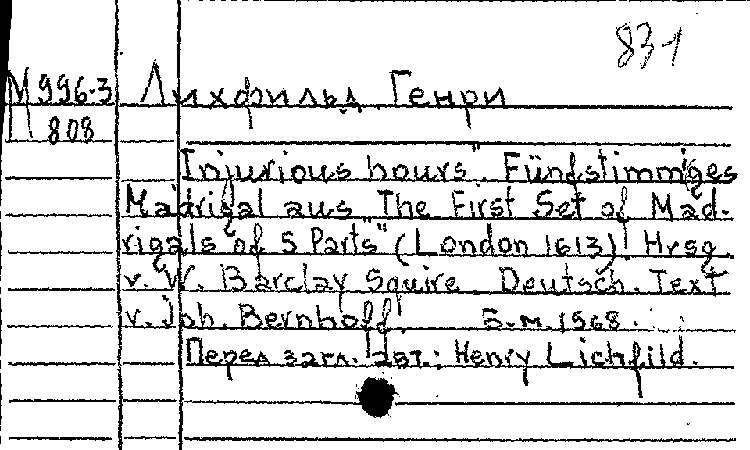 831
М 996-3 Лихфильд Генри
П 808
Injurious hours". Fünfstimmiges
Madrigal aus "The First Set of Mad-
rigals of 5 Parts" (London 1613). Hrsg.
v. W. Barclay Squire. Deutsch. Text
v. Joh. Bernhoff. Б.м. 1968.
Перед загл. авт.: Henry Lichfild.